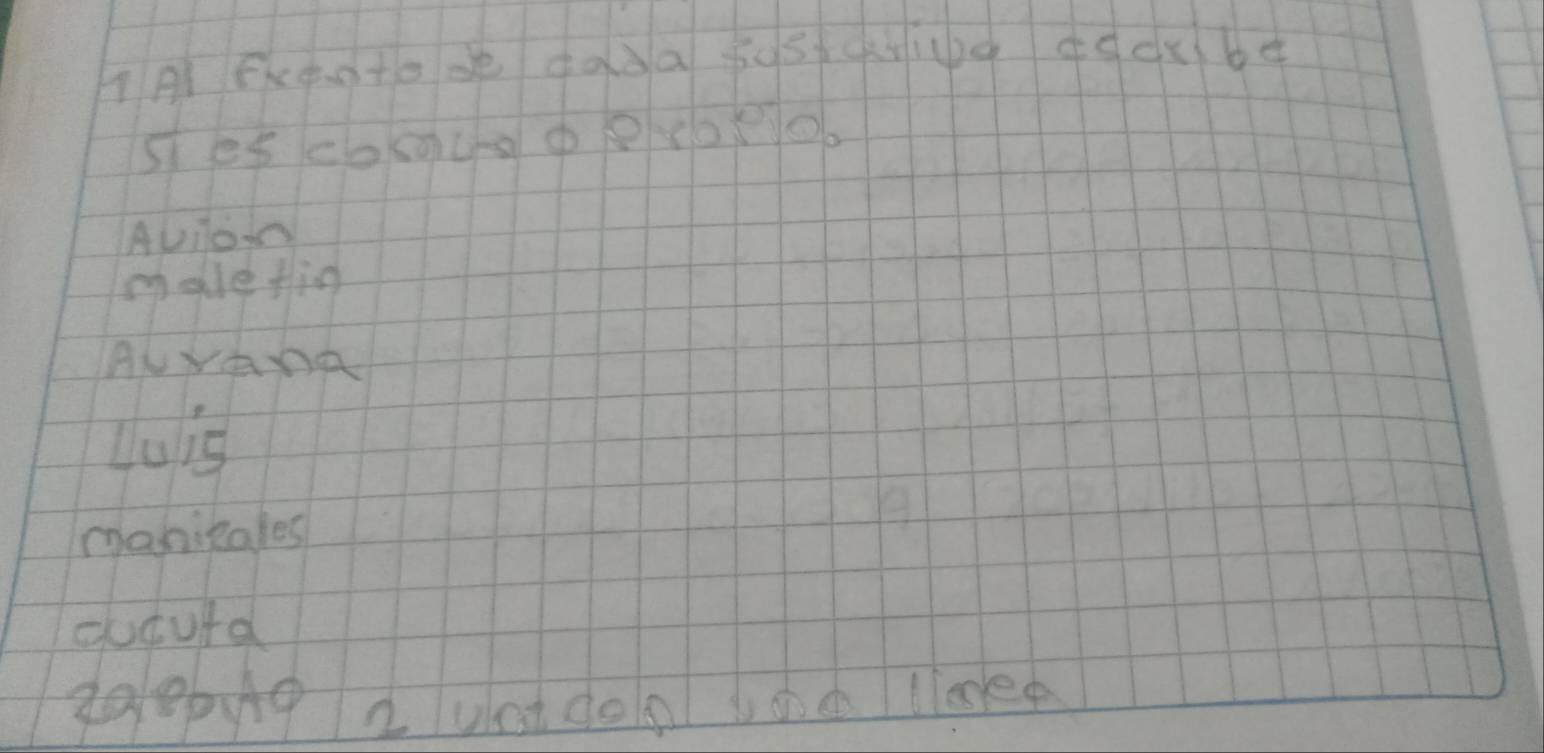 1 Al Frente de cada sustantivo escribe
si es comun o propio.
Avión
maletin
Aurana
Luis
manizales
cucuta
zapato 2 unt con una linea